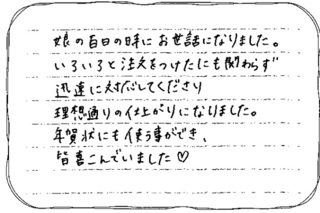 娘の百日の時にお世話になりました。
いろいろと注文をつけたにも関わらず
迅速に対応してくださり
理想通りの仕上がりになりました。
年賀状にも使う事ができ、
皆喜こんでいました♡